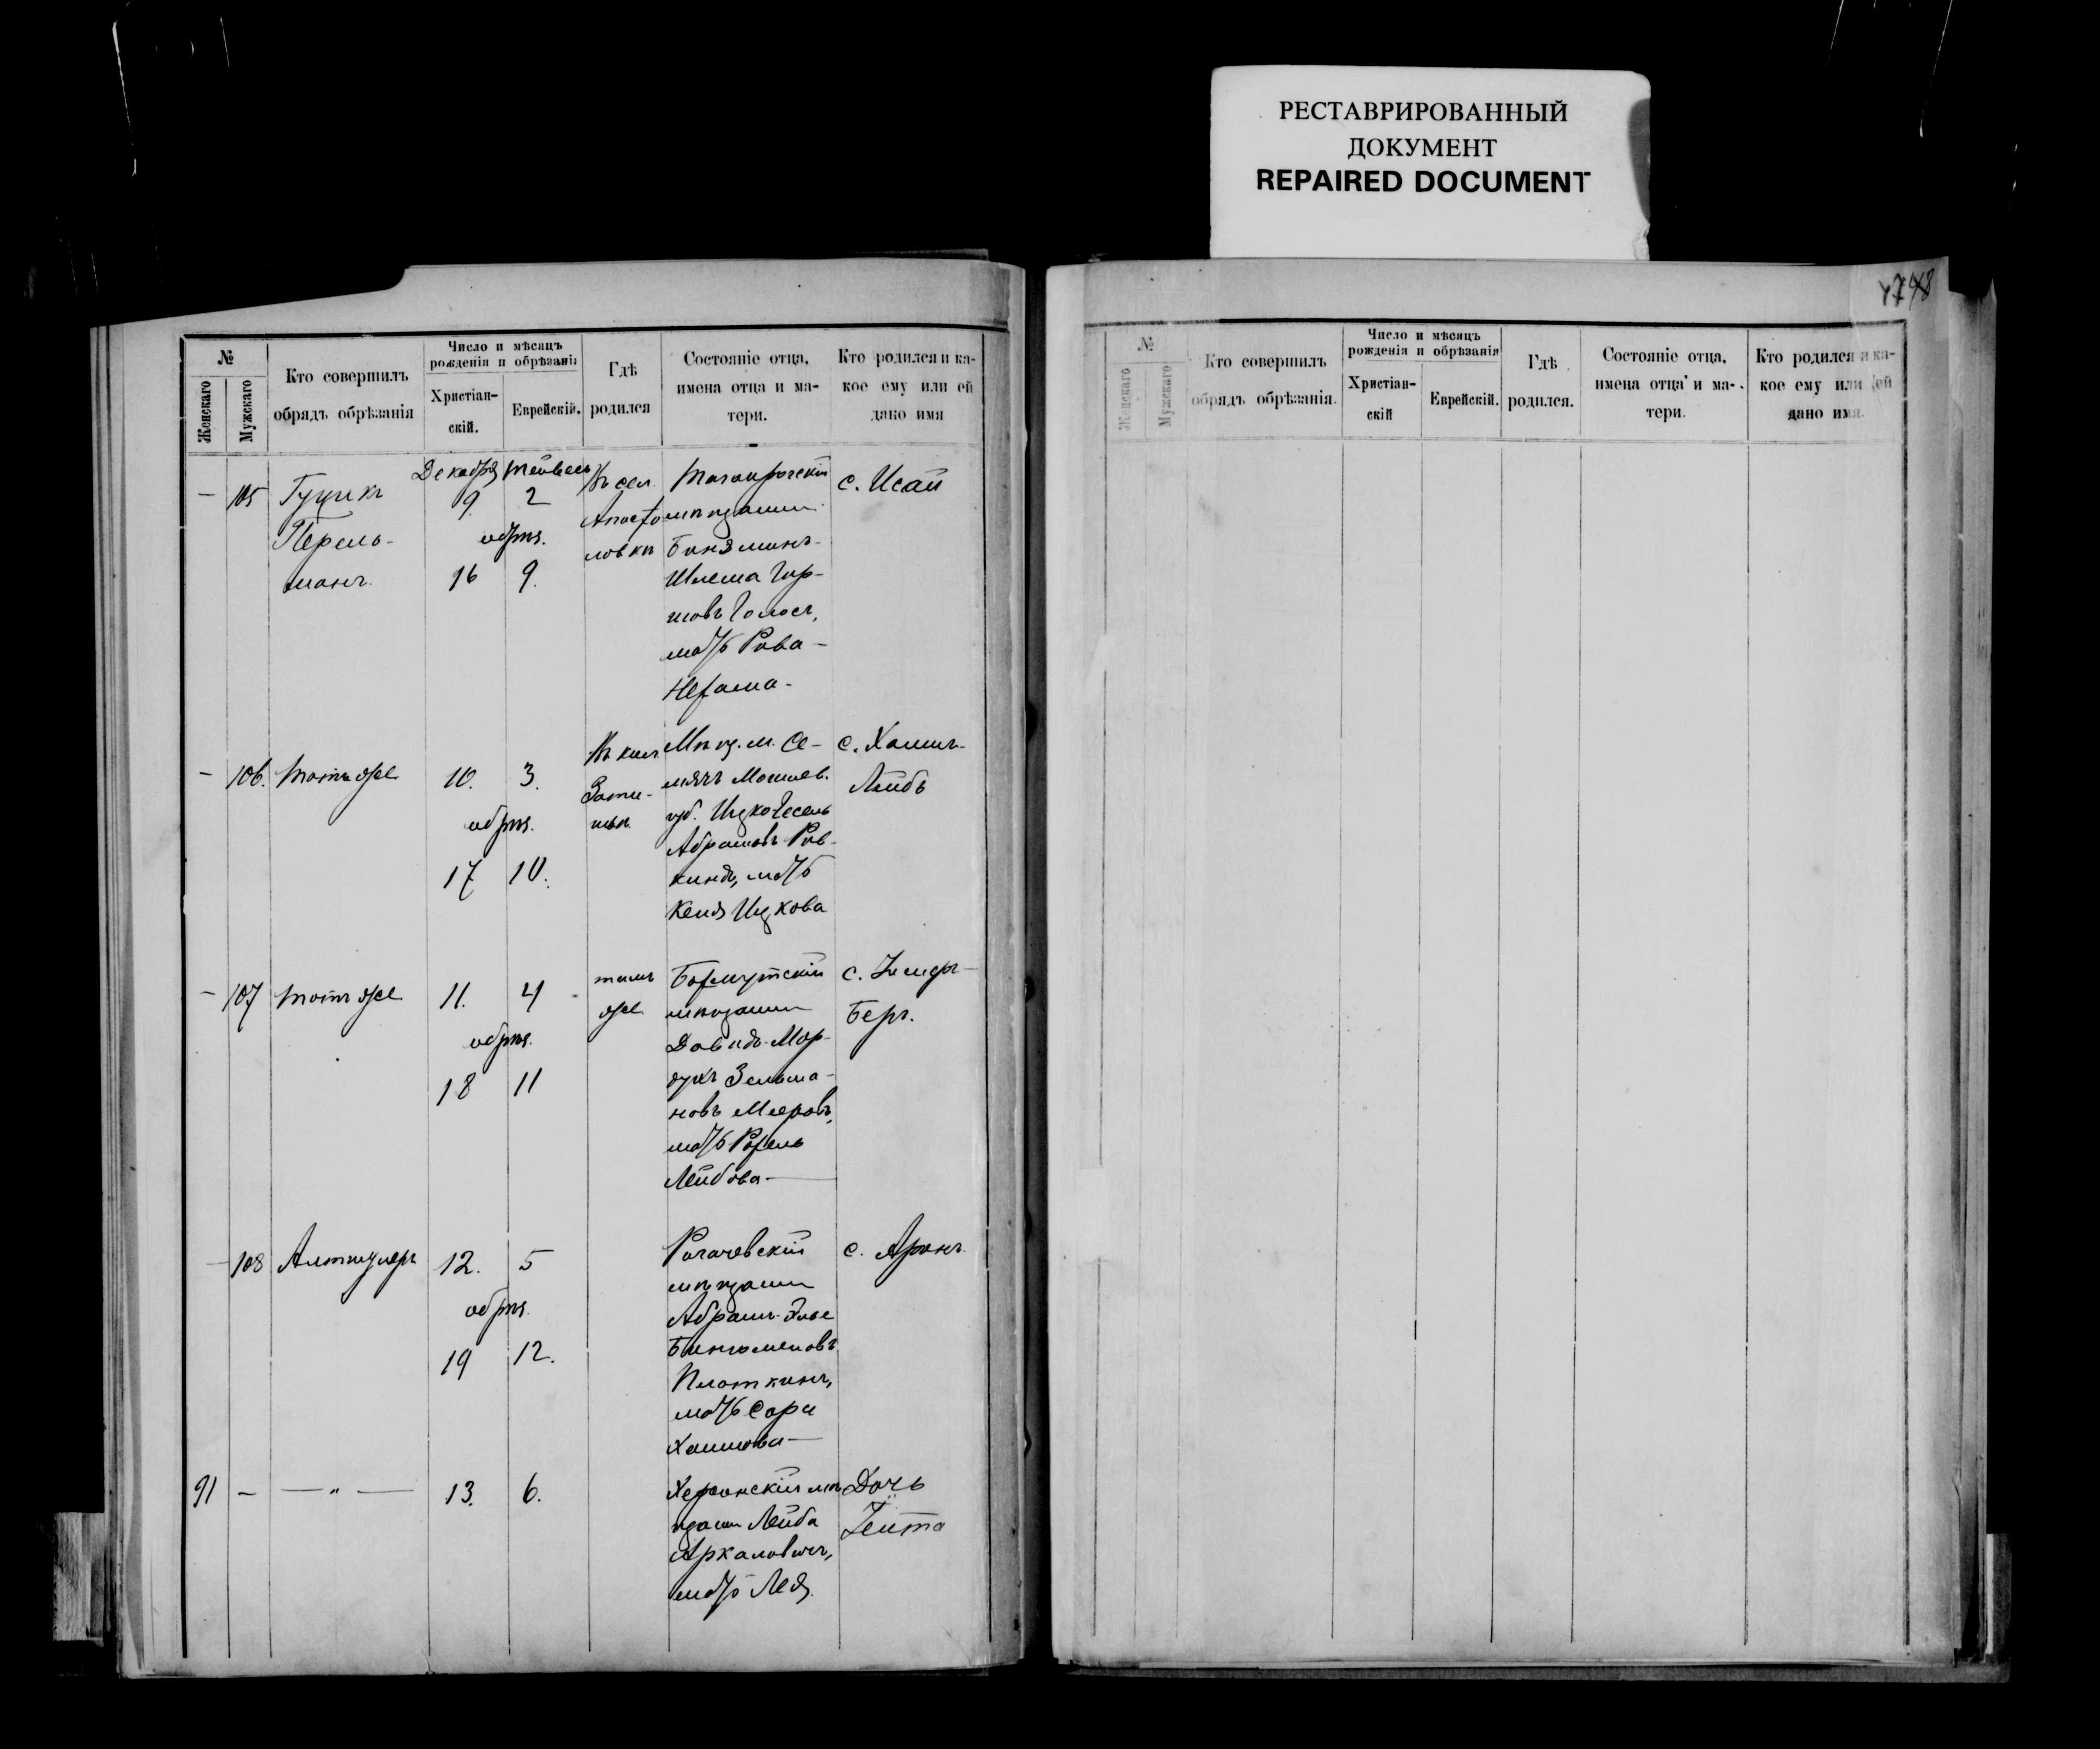 РЕСТАВРИРОВАННЫЙ
ДОКУМЕНТ
REPAIRED DOCUMENT
№
Женскаго
Мужескаго
Кто совершилъ
обрядъ обрѣзанія
Число и мѣсяцъ
рожденія и обрѣзанія
Христіан-
скій.
Еврейскій.
Гдѣ
родился
Состояніе отца,
имена отца и ма-
тери.
Кто родился и ка-
кое ему или ей
дано имя
— 105
Гуцикъ
Перель-
манъ.
Декабря
9
обрѣз.
16
Тейвесъ
2
9.
Въ сел.
Апосто
ловкѣ
Таганрогскій
мѣщанинъ
Биняминъ-
Шлема Гир-
шовъ Голосъ,
мать Рива-
Нехама-
с. Исай
— 106.
тотъ же
10.
обрѣз.
17
3.
10.
Въ кол.
Зати-
шьѣ
Мѣщ. м. Се-
Могилев.
губ. Ицко
Абрамовъ Рив-
кинд, мать
Ицкова
с. Хаимъ-
Лейбъ
— 107
тотъ же
11.
обрѣз.
18
4
11
тамъ
же
Бахмутский
мѣщанинъ
Давидъ-Мор-
духъ Зельма-
новъ Мееровъ,
мать Рахель
Лейбова —
с.
Беръ.
— 108
Алтшулеръ
12.
обрѣз.
19
5
12.
Рогачевскій
мѣщанинъ
Абрамъ-Элье
Плоткинъ,
мать Сара
Хаимова —
с. Аронъ.
91 —
— „ —
13.
6.
Херсонскій мѣ
щанин Лейба
мать Лея.
Дочь
№
Женскаго
Мужескаго
Кто совершилъ
обрядъ обрѣзанія.
Число и мѣсяцъ
рожденія и обрѣзанія
Христіан-
скій
Еврейскій.
Гдѣ
родился.
Состояніе отца,
имена отца и ма-
тери.
Кто родился и ка-
кое ему или ей
дано имя.